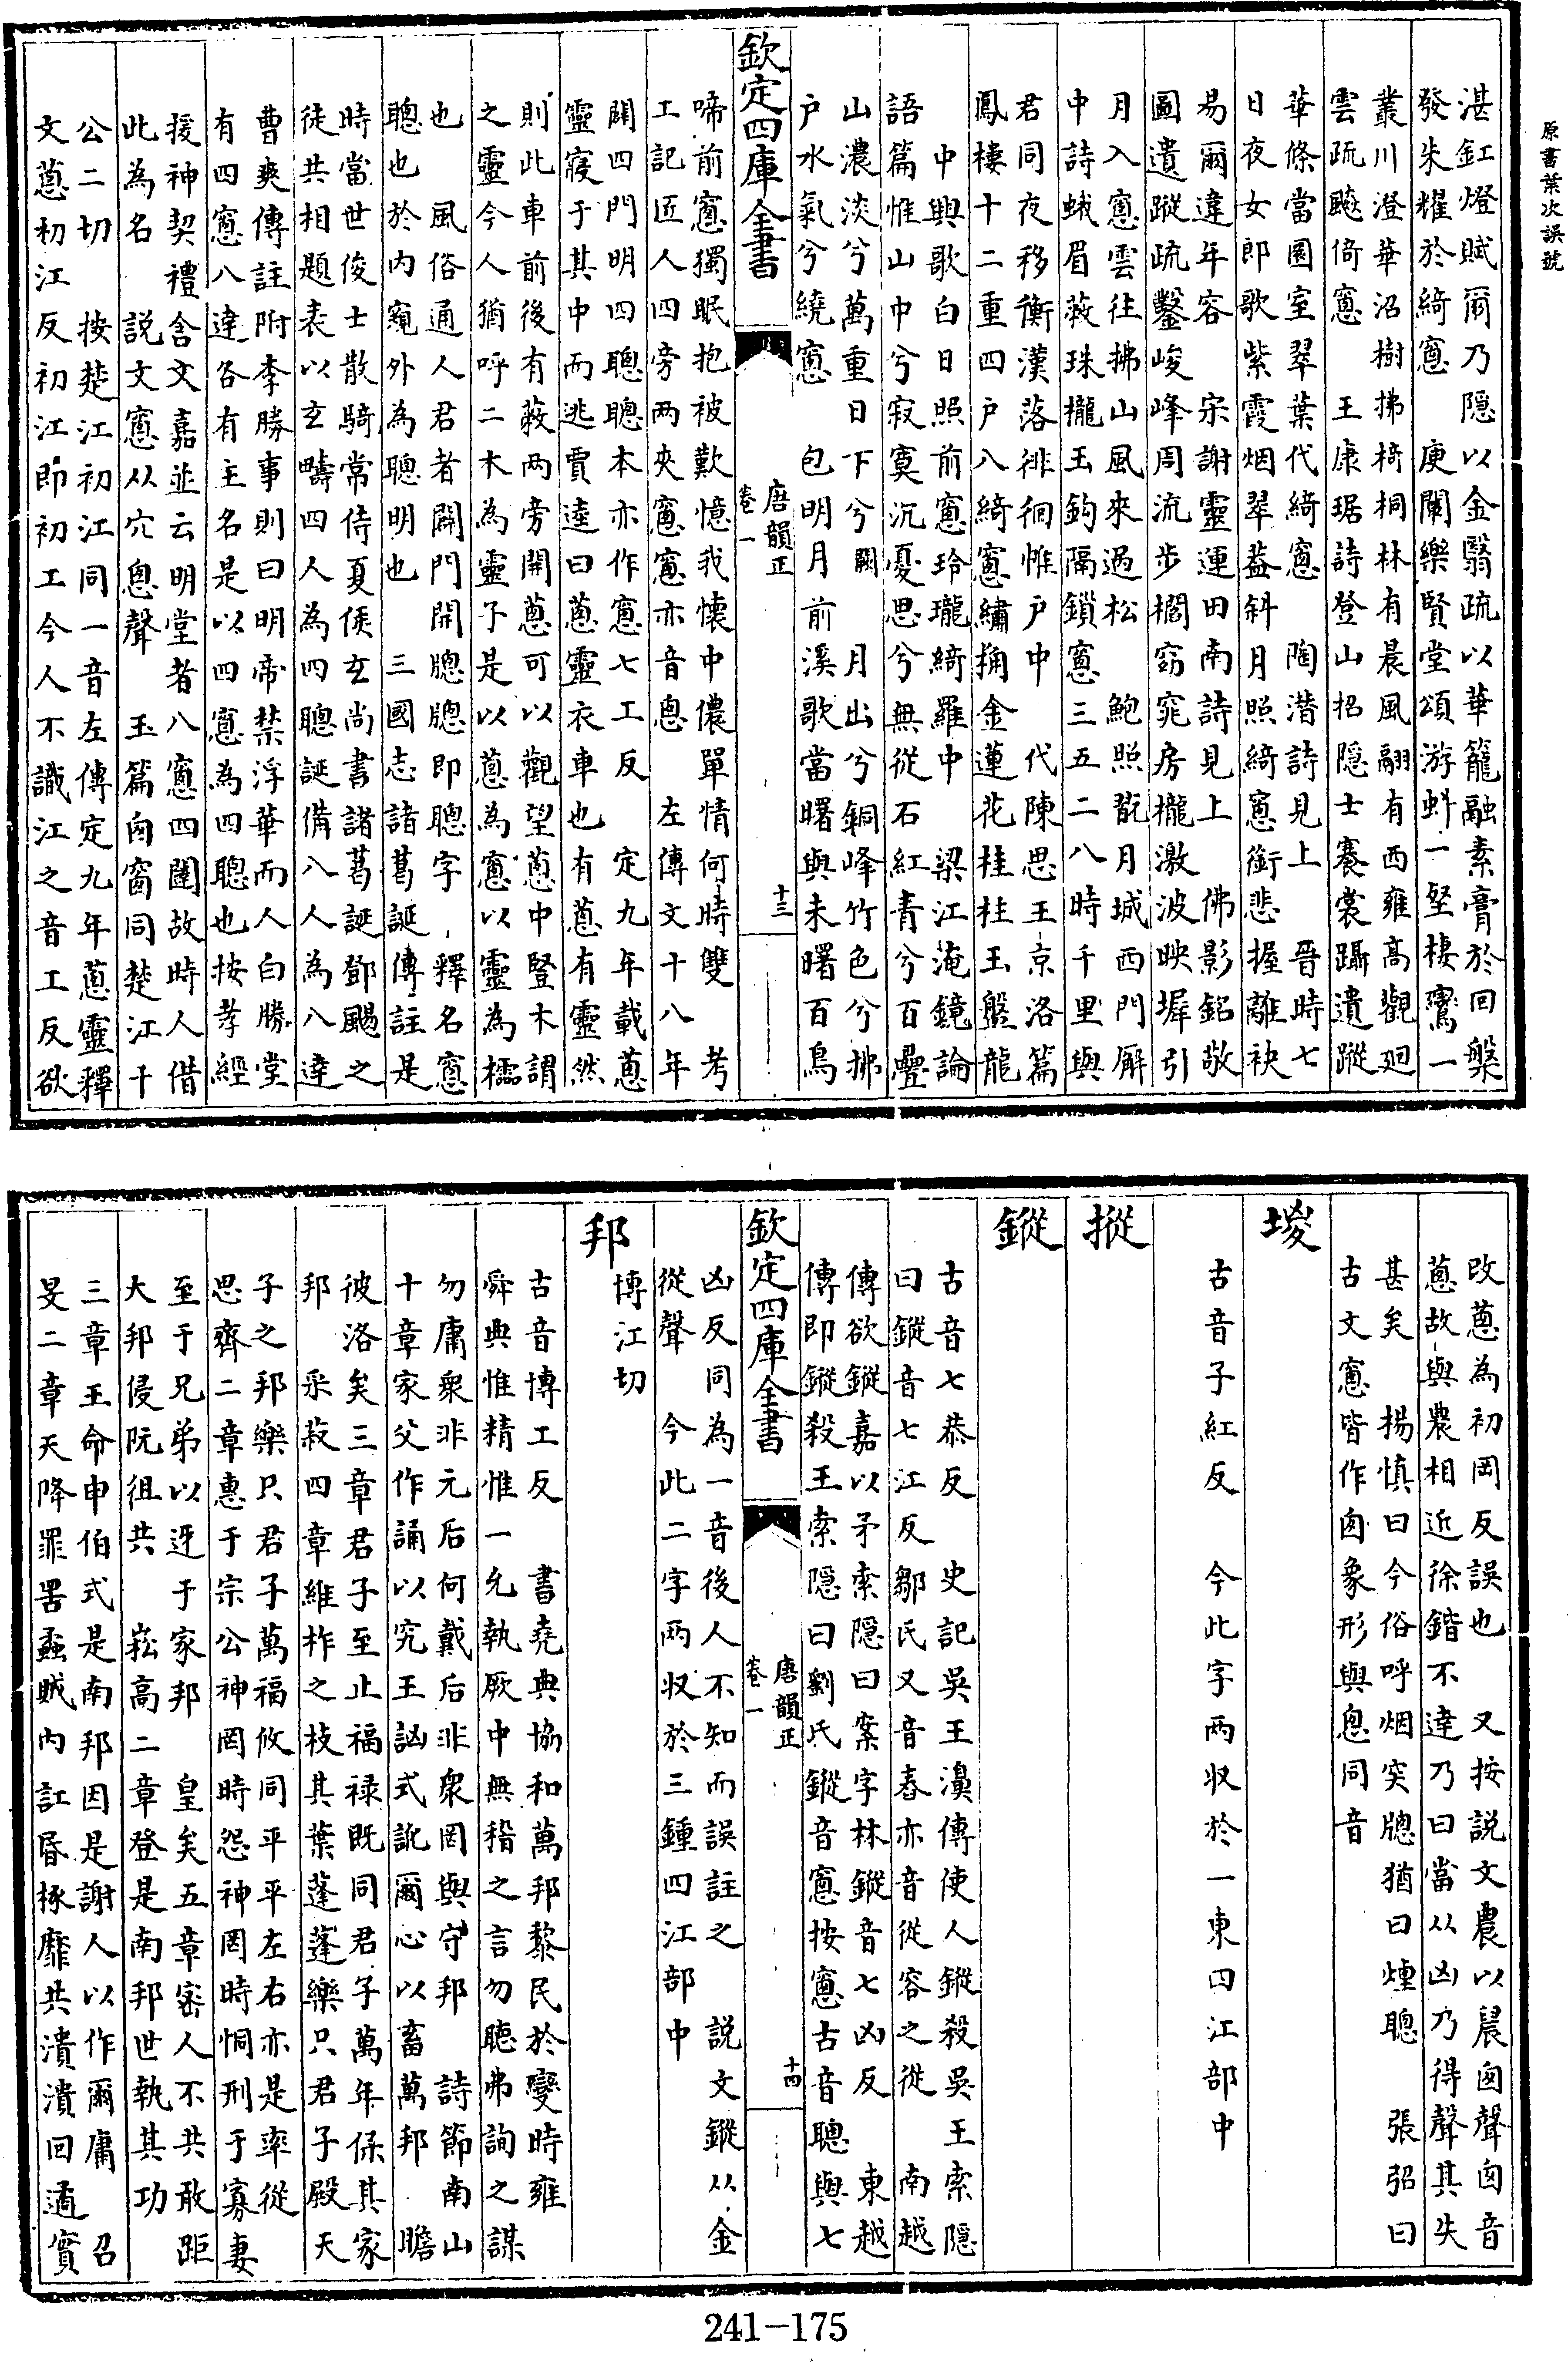 原書葉次誤號
湛釭燈賦爾乃隱以金翳疏以華籠融素膏於回槃
發朱耀於綺窻　庾闡樂賢堂頌游虯一壑棲鸞一
叢川澄華沼樹拂椅桐林有晨風翮有西雍高觀廻
雲疏飈倚窻　王康琚詩登山招隱士褰裳躡遺蹤
華條當圜室翠葉代綺窻　陶潛詩見上　晉時七
日夜女郎歌紫霞烟翠葢斜月照綺窻銜悲握離袂
易爾違年容　宋謝靈運田南詩見上　佛影銘敬
圖遺蹤疏鑿峻峰周流步櫩窈窕房櫳激波映墀引
月入窻雲往拂山風來過松　鮑照翫月城西門廨
中詩蛾眉蔽珠櫳玉鈎隔鎖窻三五二八時千里與
君同夜移衡漢落徘徊帷戶中　代陳思王京洛篇
鳳棲十二重四戶八綺窻繡桷金蓮花桂柱玉盤龍
　中興歌白日照前窻玲瓏綺羅中　梁江淹鏡論
語篇惟山中兮寂寞沉憂思兮無從石紅青兮百疊
山濃淡兮萬重日下兮闕　月出兮銅峰竹色兮拂
戶水氣兮繞窻　包明月前溪歌當曙與未曙百鳥
欽定四庫全書
唐韻正
卷一
十三
啼前窻獨眠抱被歎憶我懷中儂單情何時雙　考
工記匠人四旁两夾窻窻亦音悤　左傳文十八年
闢四門明四聰聰本亦作窻七工反　定九年載蔥
靈寢于其中而逃賈逵曰蔥靈衣車也有蔥有靈然
則此車前後有蔽两旁開蔥可以觀望蔥中豎木謂
之靈今人猶呼二木為靈子是以蔥為窻以靈為櫺
也　風俗通人君者闢門開牕牕即聰字　釋名窻
聰也於內窺外為聰明也　三國志諸葛誕傳註是
時當世俊士散騎常侍夏侯玄尚書諸葛誕鄧颺之
徒共相題表以玄疇四人為四聰誕備八人為八達
曹爽傳註附李勝事則曰明帝禁浮華而人白勝堂
有四窻八達各有主名是以四窻為四聰也按孝經
援神契禮含文嘉並云明堂者八窻四闥故時人借
此為名　說文窻从穴悤聲　玉篇囪窗同楚江千
公二切　按楚江初江同一音左傳定九年蔥靈釋
文蔥初江反初江即初工今人不識江之音工反欲
改蔥為初岡反誤也　又按說文農以晨囪聲囪音
蔥故與農相近徐鍇不達乃曰當从凶乃得聲其失
甚矣　楊慎曰今俗呼烟突牕猶曰煙聰　張弨曰
古文窻皆作囪象形與悤同音
堫
古音子紅反　今此字两收於一東四江部中
摐
鏦
古音七恭反　史記吳王濞傳使人鏦殺吳王索隱
曰鏦音七江反鄒氏又音舂亦音從容之從　南越
傳欲鏦嘉以矛索隱曰案字林鏦音七凶反　東越
傳即鏦殺王索隱曰劉氏鏦音窻按窻古音聰與七
欽定四庫全書
唐韻正
卷一
十四
凶反同為一音後人不知而誤註之　說文鏦从金
從聲　今此二字两收於三鍾四江部中
邦
博江切
古音博工反　書堯典協和萬邦黎民於變時雍
舜典惟精惟一允執厥中無稽之言勿聽弗詢之謀
勿庸衆非元后何戴后非衆罔與守邦　詩節南山
十章家父作誦以究王訩式訛爾心以畜萬邦　瞻
彼洛矣三章君子至止福祿既同君子萬年保其家
邦　采菽四章維柞之枝其葉蓬蓬樂只君子殿天
子之邦樂只君子萬福攸同平平左右亦是率從
思齊二章惠于宗公神罔時怨神罔時恫刑于寡妻
至于兄弟以迓于家邦　皇矣五章密人不共敢距
大邦侵阮徂共　崧高二章登是南邦世執其功
三章王命申伯式是南邦因是謝人以作爾庸　召
旻二章天降罪罟蟊賊內訌昏椓靡共潰潰回遹實
241-175